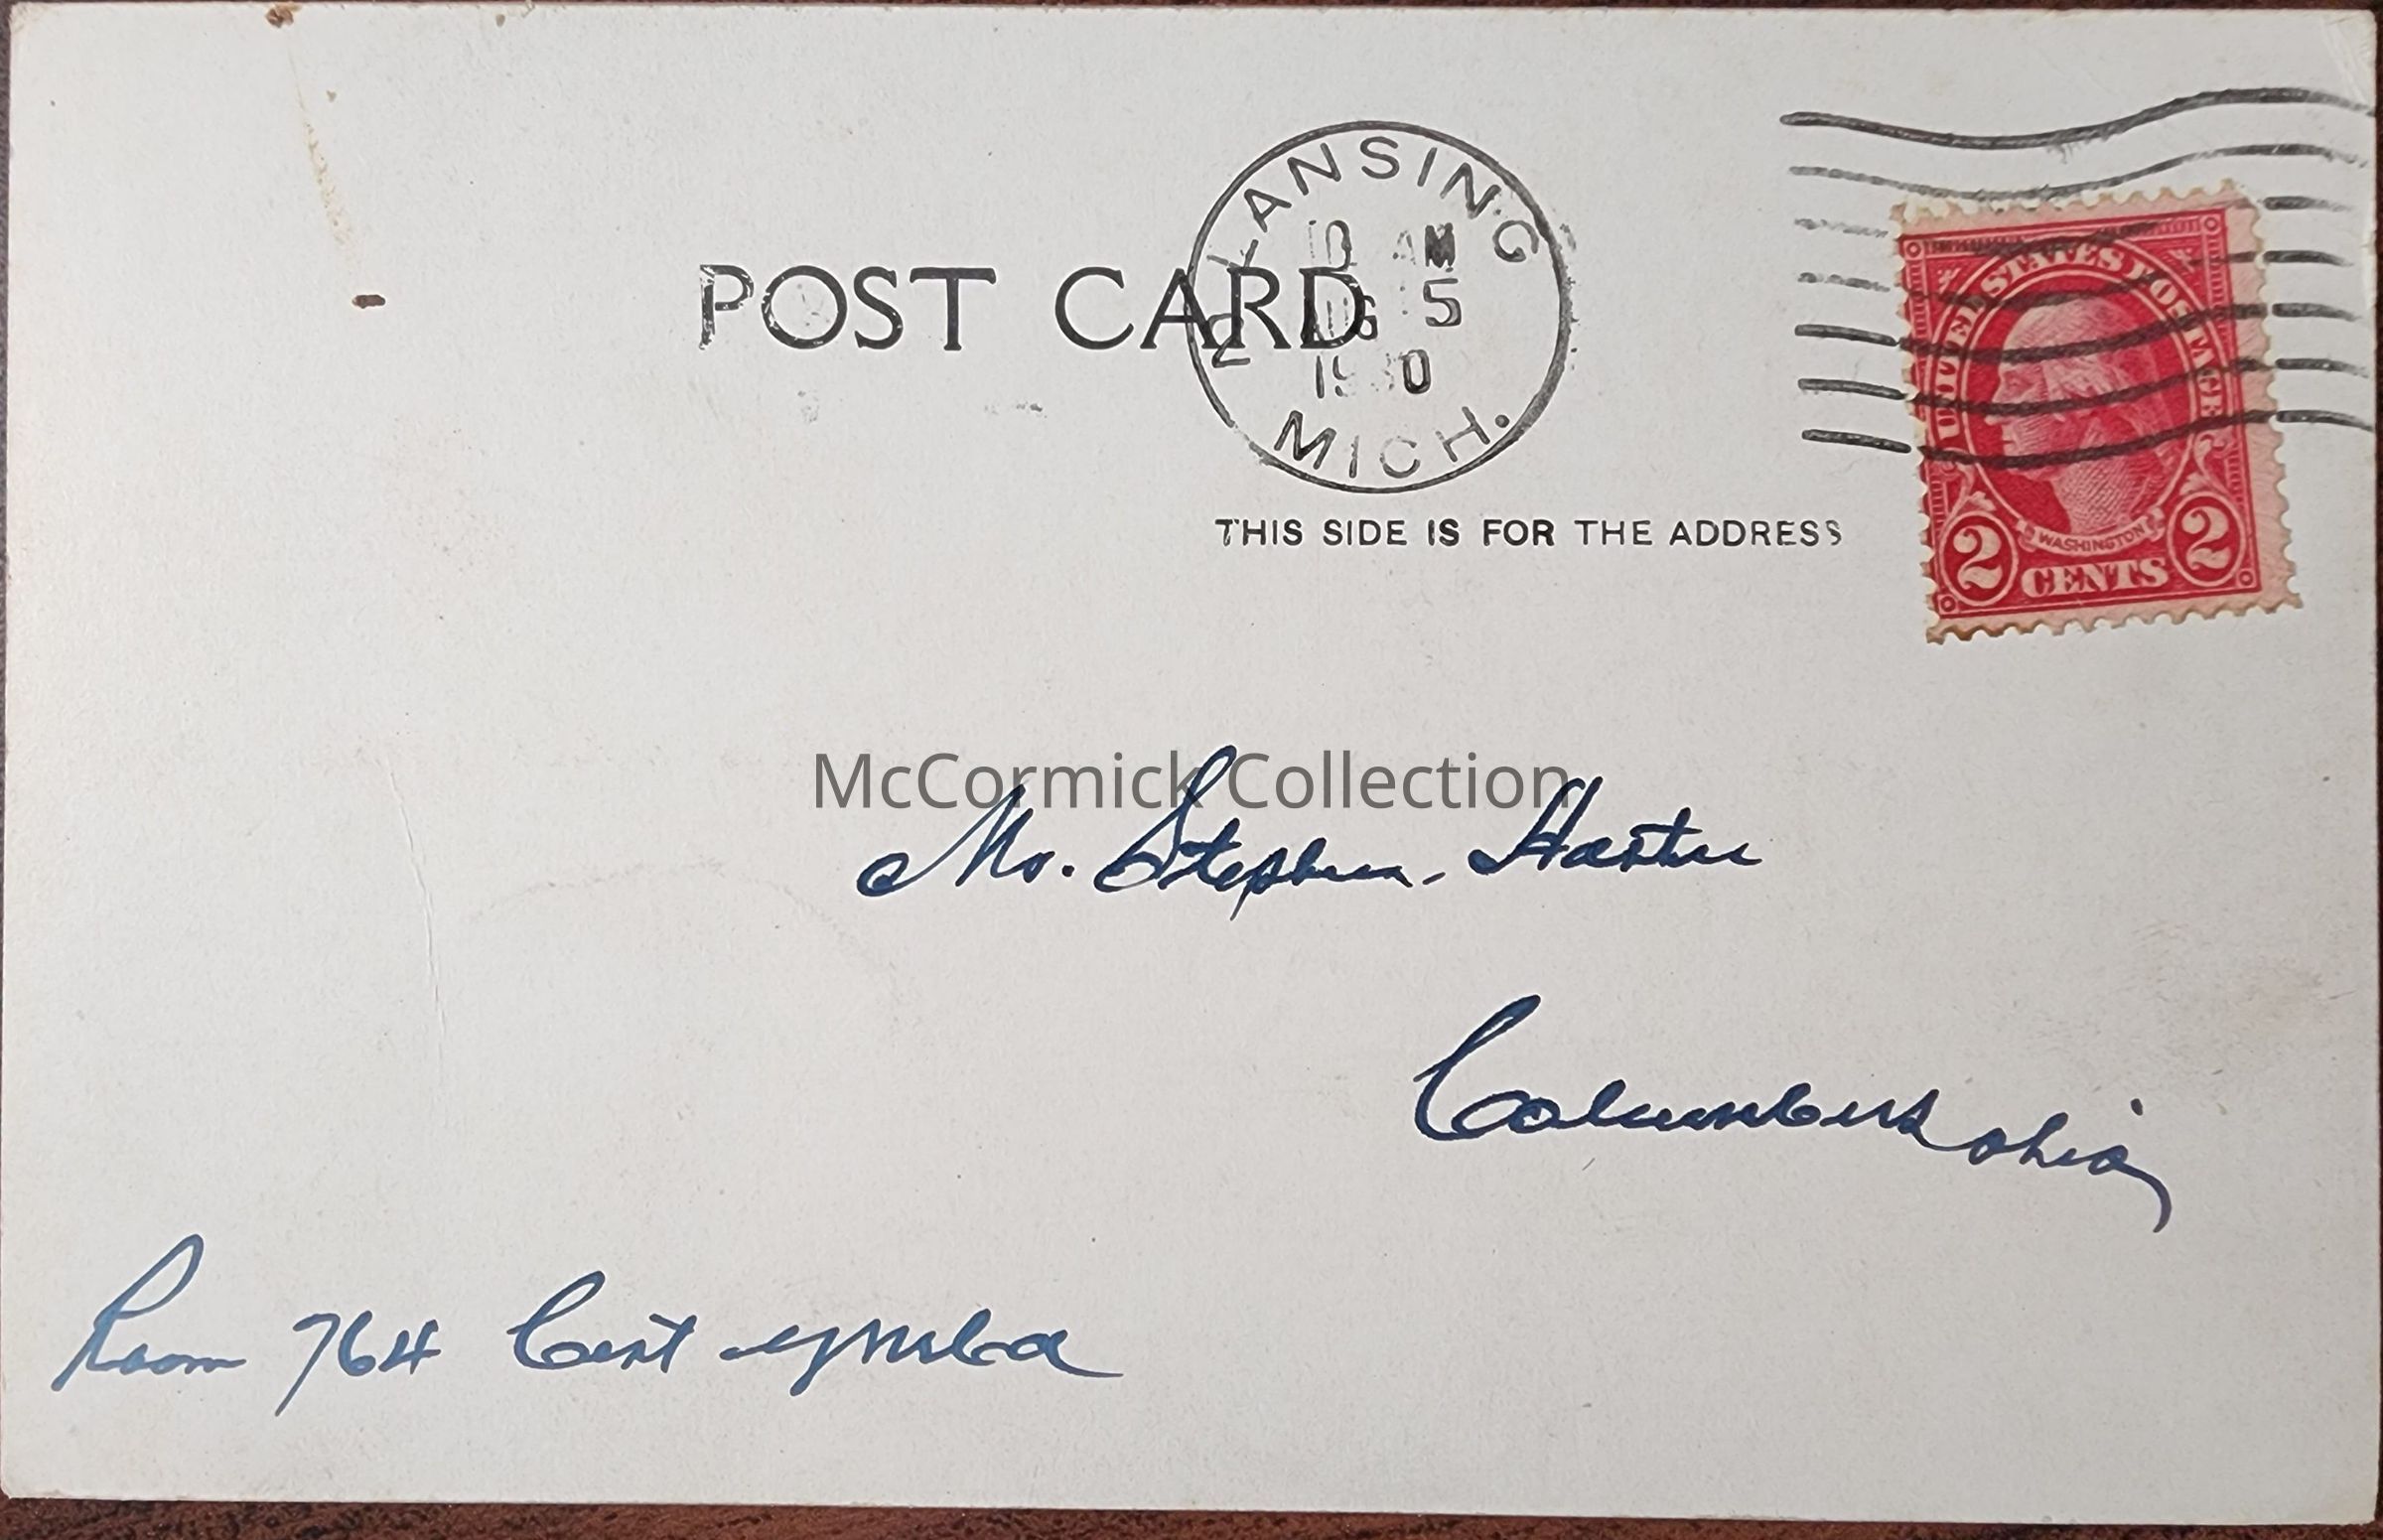 LANSING
10 AM
AUG 5
1930
MICH.
POST CARD
THIS SIDE IS FOR THE ADDRESS
UNITED STATES POSTAGE
WASHINGTON
2 CENTS 2
McCormick Collection
Mr. Stephen Harter
Columbus ohio
Room 764 Cent ymca